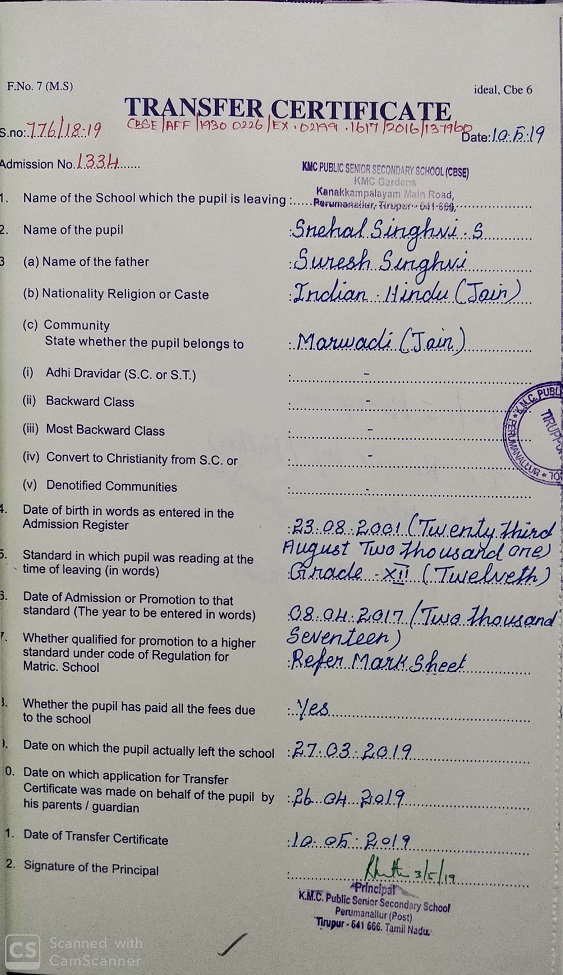 F.No. 7 (M.S)
ideal, Cbe 6
TRANSFER CERTIFICATE
S.no: 776/18-19
CBSE/AFF/1930 0226/EX-02199-1617/2016/
Date: 10.5.19
Admission No. 1334
KMC PUBLIC SENIOR SECONDARY SCHOOL (CBSE)
KMC Gardens
Kanakkampalayam Main Road,
Perumanallur, Tirupur - 641 666.
1. Name of the School which the pupil is leaving :
2. Name of the pupil : Snehal Singhvi . S
3 (a) Name of the father : Suresh Singhvi
(b) Nationality Religion or Caste : Indian - Hindu (Jain)
(c) Community
State whether the pupil belongs to : Marwadi (Jain)
(i) Adhi Dravidar (S.C. or S.T.) : -
(ii) Backward Class : -
(iii) Most Backward Class : -
(iv) Convert to Christianity from S.C. or : -
(v) Denotified Communities : -
K.M.C. PUBL
PERUMANALLUR
TIRUPPU
4. Date of birth in words as entered in the
Admission Register : 23.08.2001 (Twenty third
August Two thousand one)
5. Standard in which pupil was reading at the
time of leaving (in words) Grade - XII (Twelveth)
6. Date of Admission or Promotion to that
standard (The year to be entered in words) 08.04.2017 (Two thousand
Seventeen)
7. Whether qualified for promotion to a higher
standard under code of Regulation for
Matric. School : Refer Mark Sheet
8. Whether the pupil has paid all the fees due
to the school : Yes
9. Date on which the pupil actually left the school : 27.03.2019
10. Date on which application for Transfer
Certificate was made on behalf of the pupil by
his parents / guardian : 26.04.2019
1. Date of Transfer Certificate : 10.05.2019
2. Signature of the Principal : 3/5/19
Principal
K.M.C. Public Senior Secondary School
Perumanallur (Post)
Tirupur - 641 666. Tamil Nadu.
CS Scanned with
CamScanner